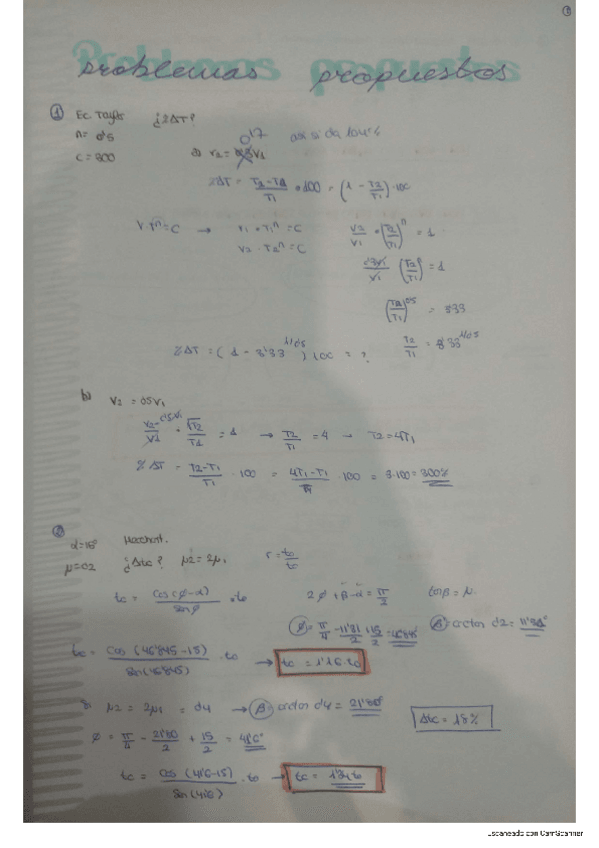 Problemas propuestos
① Ec. Taylor ¿%ΔT?
n = 0'5
0'17 así si da
C = 300 a) V2 = V1
%ΔT = (T2-T1)/T1 · 100 = (1 - T2/T1) · 100
V·T^n = C → V1 · T1^n = C V2/V1 · (T2/T1)^n = 1
V2 · T2^n = C
0'3V1/V1 (T2/T1)^n = 1
(T2/T1)^0'5 = 3'33
%ΔT = (1 - 3'33^1/0'5) 100 = ? T2/T1 = 3'33^1/0'5
b) V2 = 0'5V1
V2/V1 · √T2/T1 = 1 → T2/T1 = 4 → T2 = 4T1
%ΔT = (T2-T1)/T1 · 100 = (4T1-T1)/T1 · 100 = 3·100 = 300%
②
α=15° Merchant.
μ=0'2 ¿Δtc? μ2 = 2μ1 r = to/tc
tc = cos(φ-α)/senφ · to 2φ+β-α = π/2 tanβ = μ
φ = π/4 - 11'31/2 + 15/2 = 46'845° β = arctan 0'2 = 11'31°
tc = cos(46'845-15)/sen(46'845) · to → tc = 1'16·to
Si μ2 = 2μ1 = 0'4 → β = arctan 0'4 = 21'80°
Δtc = 18%
φ = π/4 - 21'80/2 + 15/2 = 41'6°
tc = cos(41'6-15)/sen(41'6) · to → tc = 1'34 to
Escaneado con CamScanner